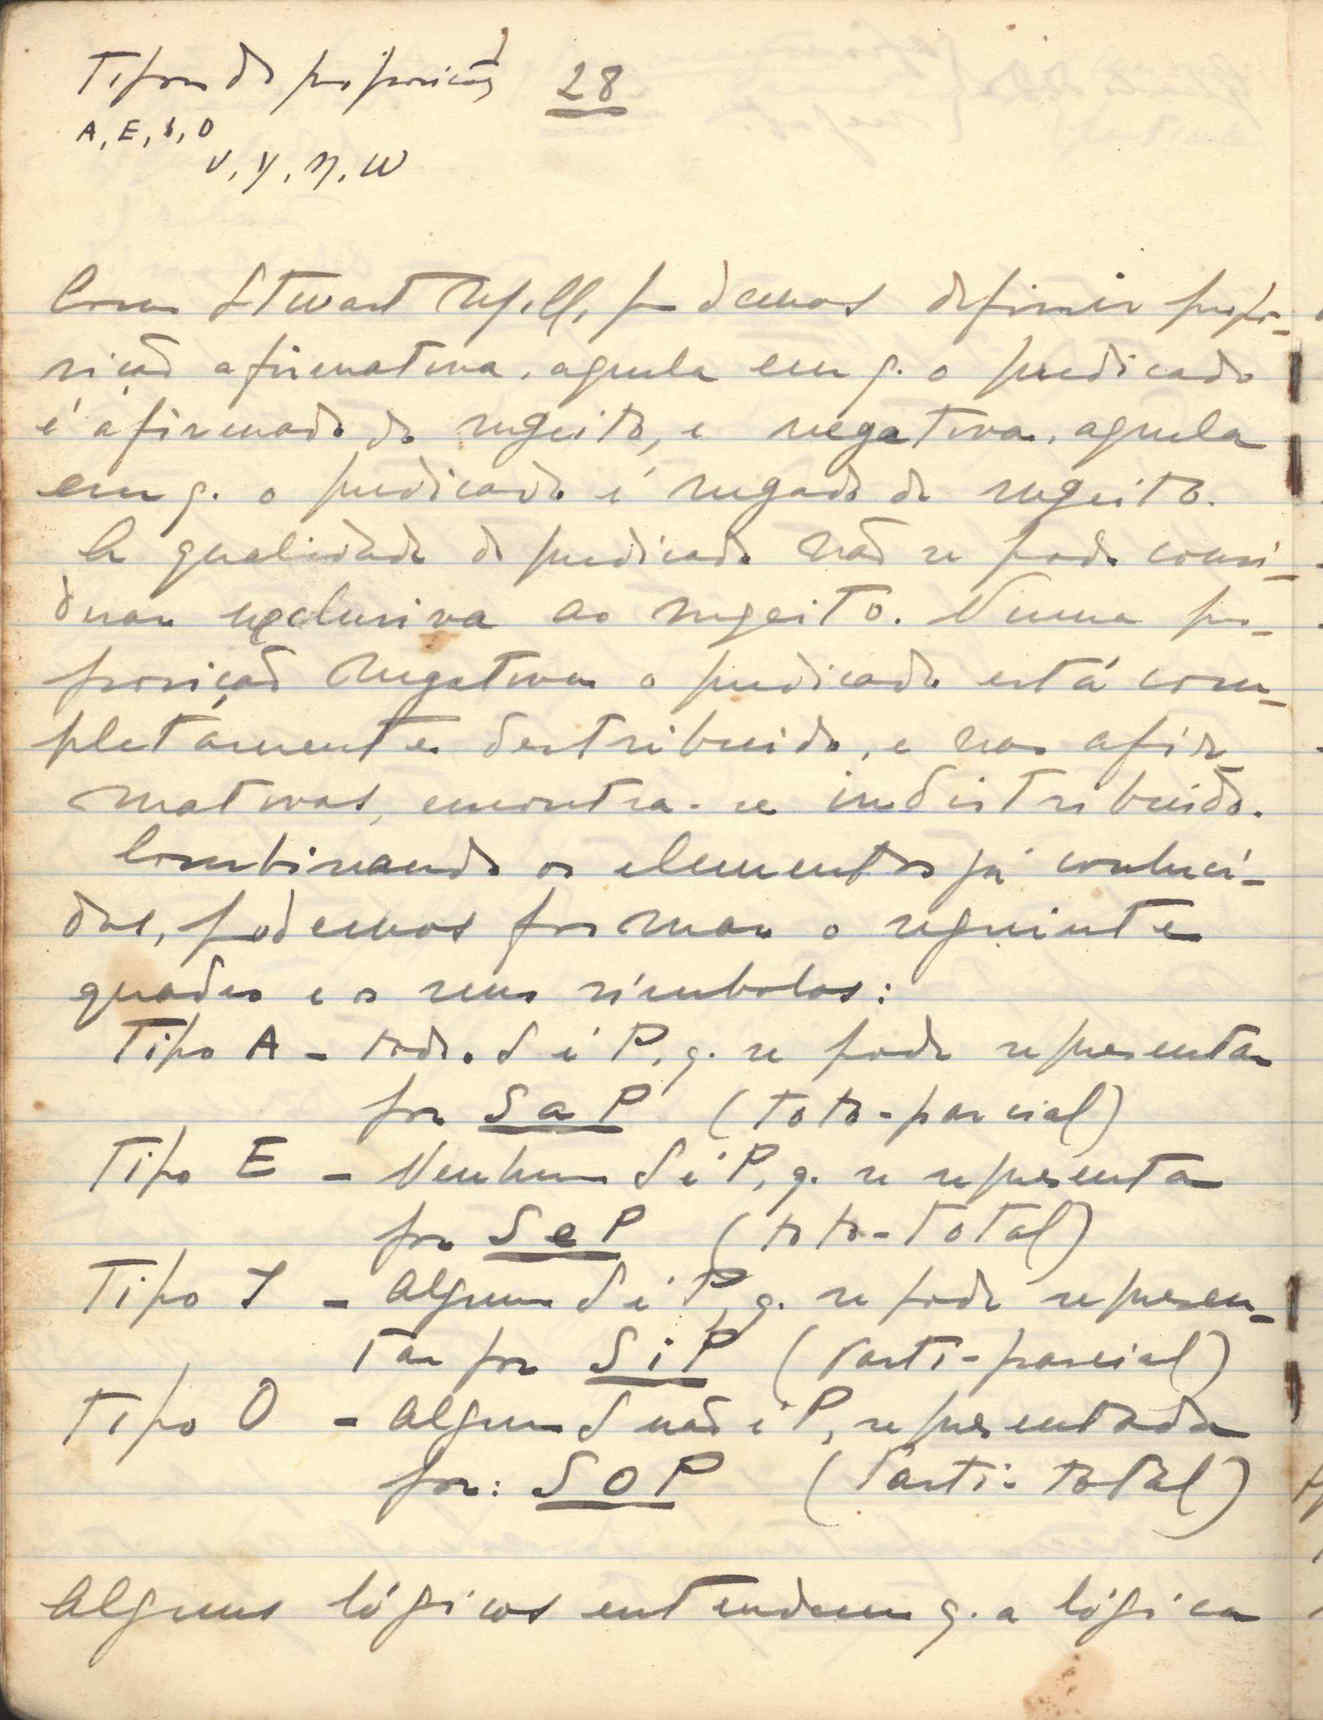 Tipos de proposição 28
A, E, I, O
U, Y, η, ω
Com Stwart Mill, podemos definir propo-
sição afirmativa, aquela em q. o predicado
é afirmado do sugeito, e negativa, aquela
em q. o predicado é negado do sugeito.
A qualidade do predicado não se pode consi-
derar exclusiva ao sugeito. Numa pro-
posição negativa o predicado está com-
pletamente destribuido, e nas afir-
mativas, encontra-se indistribuido.
Combinando os elementos já conheci-
dos, podemos formar o seguinte
quadro e os seus símbolos:
Tipo A - todo S é P, q. se pode representar
por S a P (toto-parcial)
Tipo E - Nenhum S é P, q. se representa
por S e P (toto-total)
Tipo I - Algum S é P, q. se pode represen-
tar por S i P (Parti-parcial)
Tipo O - Algum S não é P, representada
por: S O P (Parti-total)
Alguns lógicos entendem q. a lógica